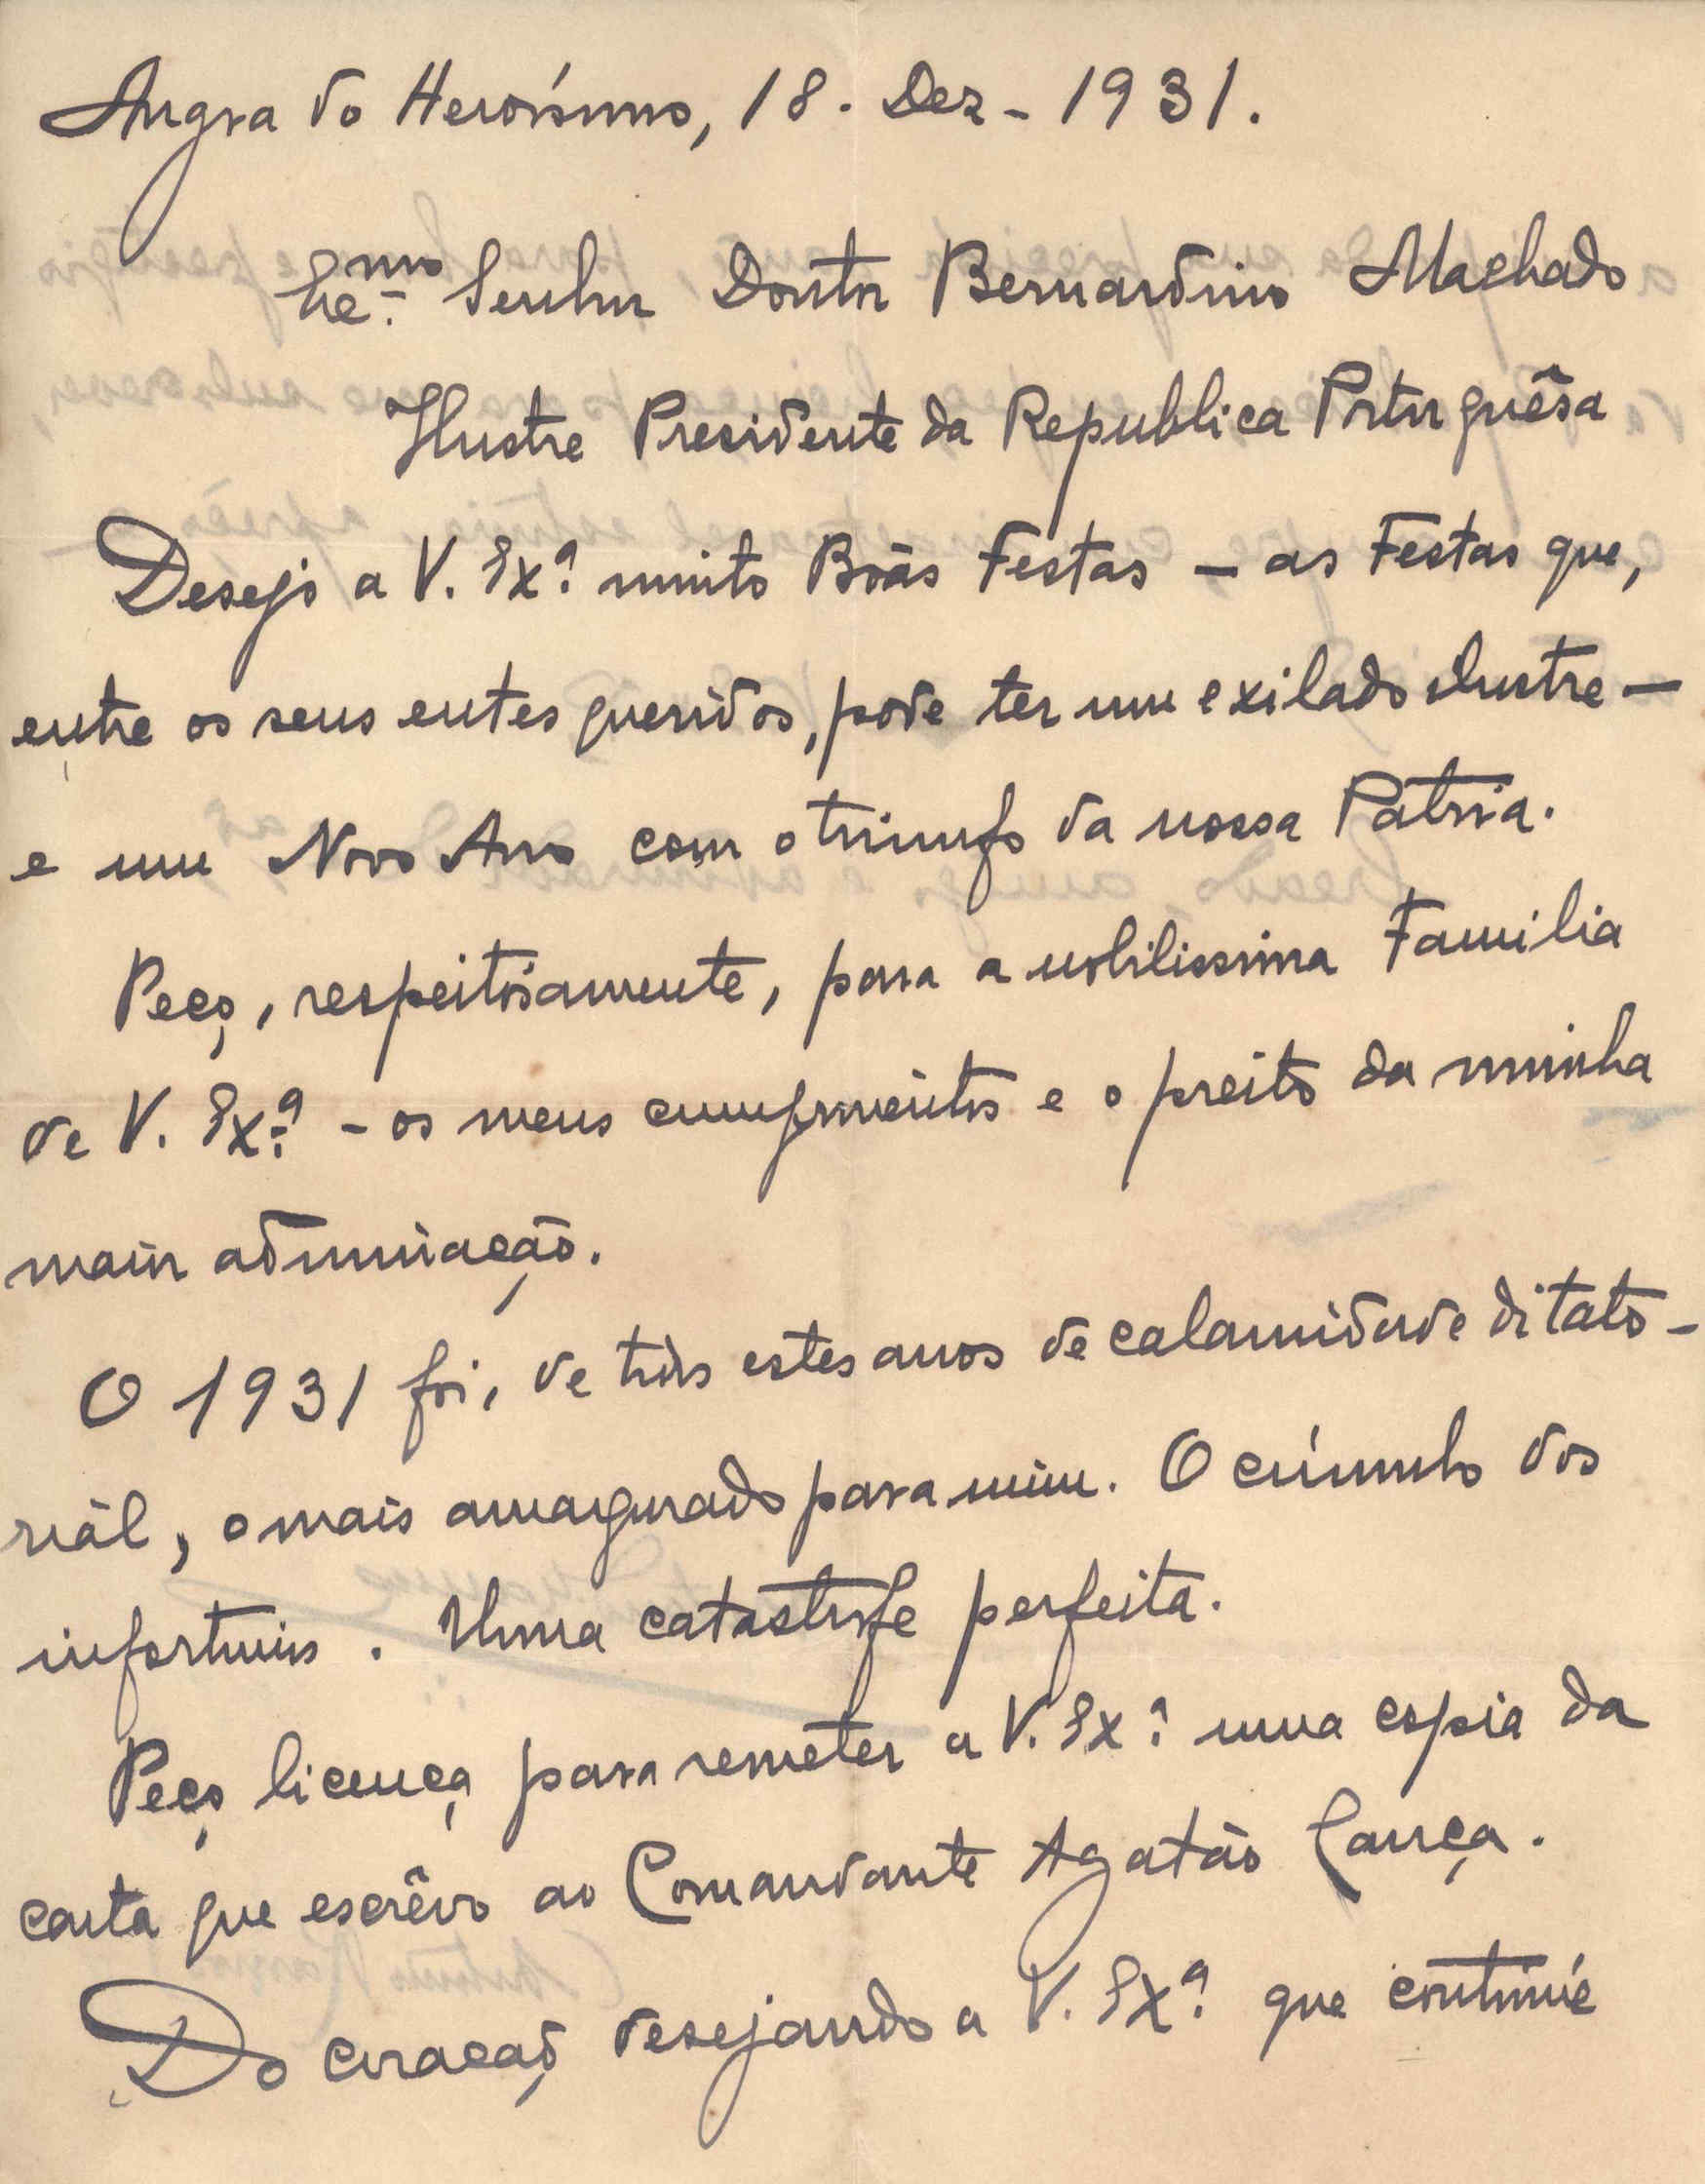 Angra do Heroísmo, 18. Dez - 1931.
Senhor Doutor Bernardino Machado
Ilustre Presidente da Republica Portuguêsa
Desejo a V. Exª muito Bôas Festas — as Festas que,
entre os seus entes queridos, pode ter um exilado ilustre —
e um Novo Ano com o triunfo da nossa Pátria.
Peço, respeitósamente, para a nobilissima Familia
de V. Exª - os meus cumprimentos e o preito da minha
maior admiração.
O 1931 foi, de todos estes anos de calamidade ditato-
riál, o mais amargurado para mim. O cúmulo dos
infortunios. Uma catástrofe perfeita.
Peço licença para remeter a V. Exª uma copia da
carta que escrêvo ao Comandante Agatão Lança.
Do coração desejando a V. Exª que continúe